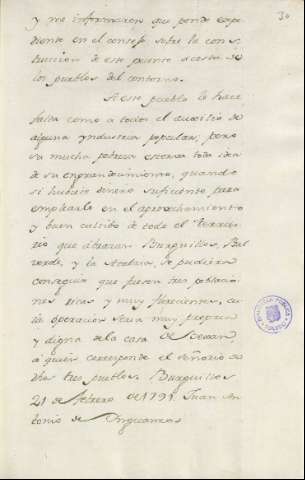 30
y me informaron que pende expe-
diente en el consejo sobre la cons-
truccion de este puente a costa de
los pueblos del contorno.
A este pueblo le hace
falta como a todos el auxilio de
alguna yndustria popular, pero
su mucha pobreza estorva toda idea
de su engrandecimiento, quando
si hubiese dinero suficiente para
emplearle en el aprovechamiento
y buen cultibo de todo el terreno
que abrazan Burguillos, Bal
verde, y la Atalaia, se pudiera
conseguir que fuesen tres poblacio-
nes ricas y muy florecientes, cu-
ia operacion seria muy propia
y digna de la casa de Bexar,
a quien corresponde el señorio de
dhos tres pueblos. Burguillos
21 de febrero de 1791. Juan An-
tonio de
BIBLIOTECA PUBLICA
TOLEDO